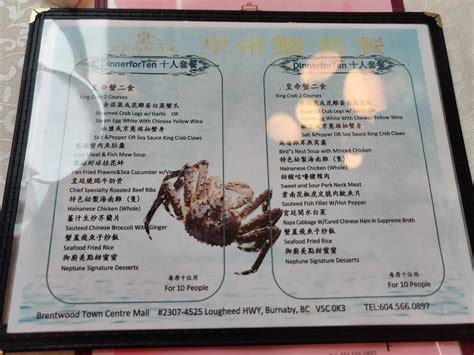 皇帝蟹套餐
Dinner for Ten 十人套餐
皇帝蟹二食
King Crab 2 Courses
金蒜蒸或花雕蛋白蒸蟹爪
Steamed Crab Legs w/ Garlic OR
Steam Egg White With Chinese Yellow Wine
椒鹽或京蔥頭抽蟹身
Salt &Pepper OR Soy Sauce King Crab Claws
高湯蟹肉魚肚羹
Crab Meat & Fish Maw Soup
Pan Fried Prawns&Sea Cucumber w/
皇廷燒焗牛肋骨
Chief Specialty Roasted Beef Ribs
特色秘製海南雞 (隻)
Hainanese Chicken (Whole)
薑汁生炒芥蘭片
Sauteed Chinese Broccoli With Ginger
蟹蓋飛魚子炒飯
Seafood Fried Rice
御廚美點甜蜜蜜
Neptune Signature Desserts
每席十位用
For 10 People
Dinner for Ten 十人套餐
皇帝蟹二食
King Crab 2 Courses
金蒜蒸或花雕蛋白蒸蟹爪
Steamed Crab Legs w/ Garlic OR
Steam Egg White With Chinese Yellow Wine
椒鹽或京蔥頭抽蟹身
Salt &Pepper OR Soy Sauce King Crab Claws
高湯雞茸燕窩羹
Bird"s Nest Soup with Minced Chicken
特色秘製海南雞 (隻)
Hainanese Chicken (Whole)
甜酸咕嚕豬頸肉
Sweet and Sour Pork Neck Meat
Sauteed Fish Fillet w/ Hot Pepper
宮廷開水白菜
Napa Cabbage W/Cured Chinese Ham In Supreme Broth
蟹蓋飛魚子炒飯
Seafood Fried Rice
御廚美點甜蜜蜜
Neptune Signature Desserts
每席十位用
For 10 People
Brentwood Town Centre Mall #2307-4525 Lougheed HWY, Burnaby, BC V5C 0K3 TEL:604.566.0897